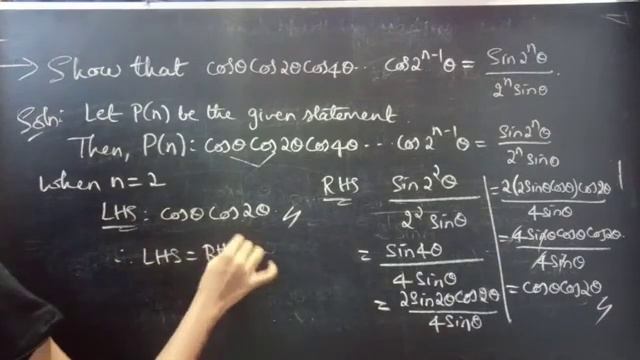 → Show that cosθ cos2θ cos4θ ... cos2ⁿ⁻¹θ = Sin2ⁿθ / 2ⁿ sinθ.
Soln: Let P(n) be the given statement.
Then, P(n): cosθ cos2θ cos4θ ... cos2ⁿ⁻¹θ = Sin2ⁿθ / 2ⁿ sinθ
When n=2
LHS: cosθ cos2θ
∴ LHS = RH
RHS Sin2²θ / 2² Sinθ
= Sin4θ / 4Sinθ
= 2Sin2θ cos2θ / 4Sinθ
= 2(2Sinθcosθ)cos2θ / 4Sinθ
= 4Sinθcosθcos2θ / 4Sinθ
= cosθcos2θ